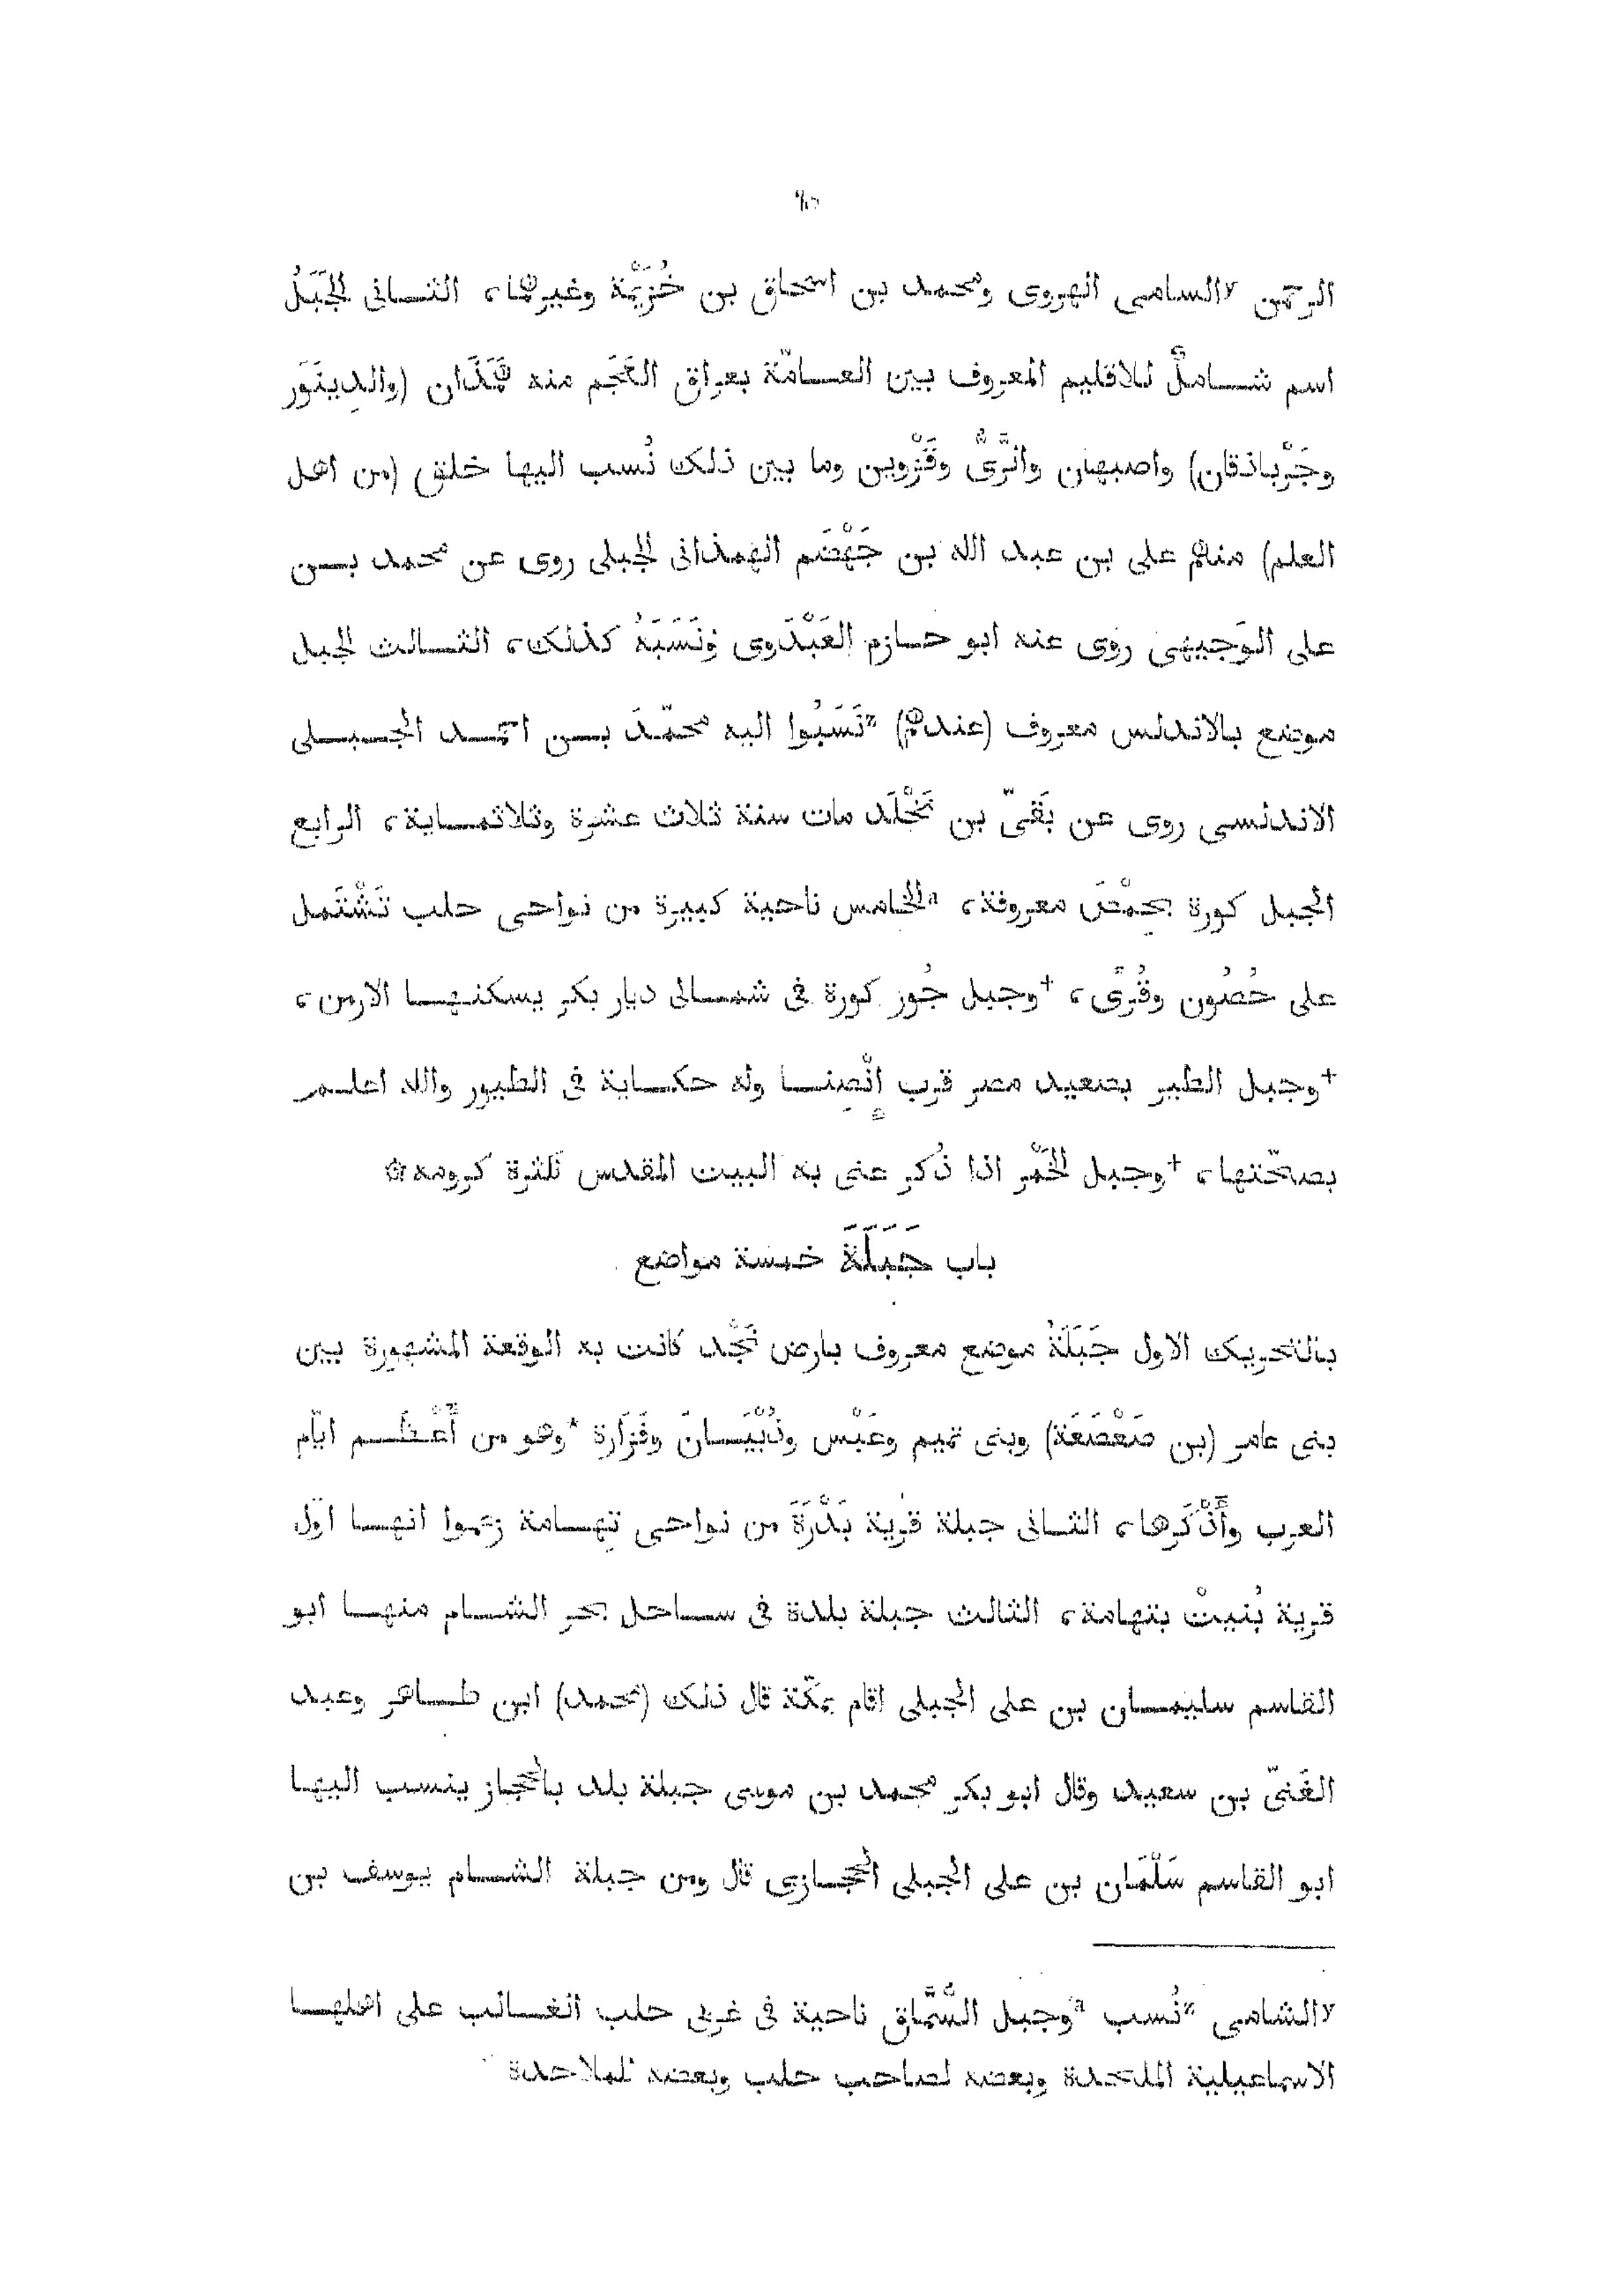 ٩٥
الرحمن ٧السامى الهروى ومحمد بن اسحاق بن خُزَيْمَة وغيرهما، الثــانى الجَبَلُ
اسم شــاملٌ للاقليم المعروف بين العــامّة بعراق العَجَم منه هَمَذَان (والدِينَوَر
وجَرْباذقان) واصبهان والرَّىُّ وقَزْوين وما بين ذلك نُسب اليها خلق (من اهل
العلم) منهم على بن عبد الله بن جَهْضَم الهمذانى الجبلى روى عن محمد بــن
على الوَجيهى روى عنه ابو حــازم العَبْدَوى ونَسَبَهُ كذلك، الثــالث الجبل
موضع بالاندلس معروف (عندهم) zنَسَبُوا اليه محمّدَ بــن احمــد الجــبــلى
الاندلسى روى عن بَقىّ بن مَخْلَد مات سنة ثلاث عشرة وثلاثمــاية، الرابع
الجبل كورة بحِمْصَ معروفة، aالخامس ناحية كبيرة من نواحى حلب تَشْتَمل
على حُصُون وقُرًى، +وجبل جُور كورة فى شمــالى ديار بكر يسكنــهــا الارمن،
+وجبل الطير بصعيد مصر قرب إنْصِنــا وله حكــاية فى الطيور والله اعلــم
بصحّتها، +وجبل الخَمْر اذا ذُكر عنى به البيت المقدس لكثرة كرومه ۞
باب جَبَلَةَ خمسة مواضع
بالتحريك الاول جَبَلَةُ موضع معروف بارض نَجْد كانت به الوقعة المشهورة بين
بنى عامر (بن صَعْصَعَة) وبنى تميم وعَبْس وذُبْيَــانَ وفَزَارة *وهو من أَعْــظَــم ايّام
العرب وأَذْكَرها، الثــانى جبلة قرية بَذْرَةَ من نواحى تِهــامة زعموا انهــا اوّل
قرية بُنيتْ بتهامة، الثالث جبلة بلدة فى ســاحل بحر الشــام منهــا ابو
القاسم سليمــان بن على الجبلى اقام بمكّة قال ذلك (محمد) ابن طــاهر وعبد
الغَنىّ بن سعيد وقال ابو بكر محمد بن موسى جبلة بلد بالحجاز ينسب اليهــا
ابو القاسم سَلْمَان بن على الجبلى الحجــازى قال ومن جبلة الشــام يوسف بن
٧الشامى zنُسب aوجبل السُّمَّاق ناحية فى غربى حلب الغــالب على اهلهــا
الاسماعيلية الملحدة وبعضه لصاحب حلب وبعضه للملاحدة